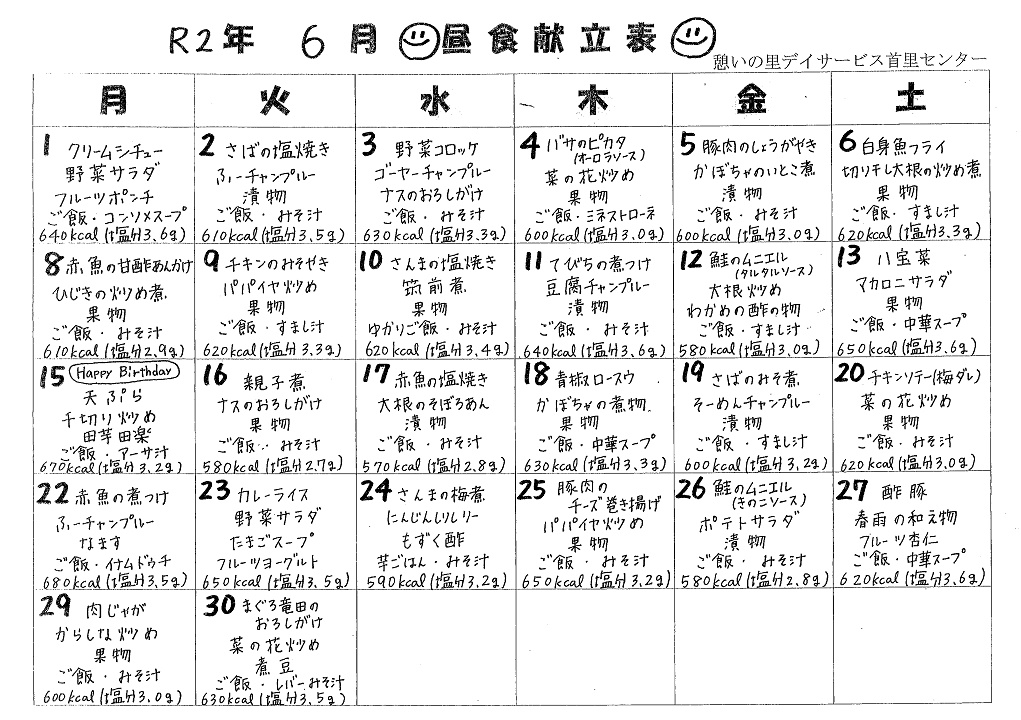 R2年 6月 昼食献立表
憩いの里デイサービス首里センター
月 火 水 木 金 土
1 クリームシチュー
野菜サラダ
フルーツポンチ
ご飯・コンソメスープ
640kcal(塩分3.6g)
2 さばの塩焼き
ふーチャンプルー
漬物
ご飯・みそ汁
610kcal(塩分3.5g)
3 野菜コロッケ
ゴーヤーチャンプルー
ナスのおろしがけ
ご飯・みそ汁
630kcal(塩分3.3g)
4 バサのピカタ
(オーロラソース)
菜の花炒め
果物
ご飯・ミネストローネ
600kcal(塩分3.0g)
5 豚肉のしょうがやき
かぼちゃのいとこ煮
漬物
ご飯・みそ汁
600kcal(塩分3.0g)
6 白身魚フライ
切り干し大根の炒め煮
果物
ご飯・すまし汁
620kcal(塩分3.3g)
8 赤魚の甘酢あんかけ
ひじきの炒め煮
果物
ご飯・みそ汁
610kcal(塩分2.9g)
9 チキンのみそやき
パパイヤ炒め
果物
ご飯・すまし汁
620kcal(塩分3.3g)
10 さんまの塩焼き
筑前煮
果物
ゆかりご飯・みそ汁
620kcal(塩分3.4g)
11 てびちの煮つけ
豆腐チャンプルー
漬物
ご飯・みそ汁
640kcal(塩分3.6g)
12 鮭のムニエル
(タルタルソース)
大根炒め
わかめの酢の物
ご飯・すまし汁
580kcal(塩分3.0g)
13 八宝菜
マカロニサラダ
果物
ご飯・中華スープ
650kcal(塩分3.6g)
15 Happy Birthday
天ぷら
千切り炒め
田芋田楽
ご飯・アーサ汁
670kcal(塩分3.2g)
16 親子煮
ナスのおろしがけ
果物
ご飯・みそ汁
580kcal(塩分2.7g)
17 赤魚の塩焼き
大根のそぼろあん
漬物
ご飯・みそ汁
570kcal(塩分2.8g)
18 青椒スロースウ
かぼちゃの煮物
果物
ご飯・中華スープ
630kcal(塩分3.3g)
19 さばのみそ煮
そーめんチャンプルー
漬物
ご飯・すまし汁
600kcal(塩分3.2g)
20 チキンソテー(梅ダレ)
菜の花炒め
果物
ご飯・みそ汁
620kcal(塩分3.0g)
22 赤魚の煮つけ
ふーチャンプルー
なます
ご飯・イナムドゥチ
680kcal(塩分3.5g)
23 カレーライス
野菜サラダ
たまごスープ
フルーツヨーグルト
650kcal(塩分3.5g)
24 さんまの梅煮
にんじんしりしりー
もずく酢
芋ごはん・みそ汁
590kcal(塩分3.2g)
25 豚肉の
チーズ巻き揚げ
パパイヤ炒め
果物
ご飯・みそ汁
650kcal(塩分3.2g)
26 鮭のムニエル
(きのこソース)
ポテトサラダ
漬物
ご飯・みそ汁
580kcal(塩分2.8g)
27 酢豚
春雨の和え物
フルーツ杏仁
ご飯・中華スープ
620kcal(塩分3.6g)
29 肉じゃが
からしな炒め
果物
ご飯・みそ汁
600kcal(塩分3.0g)
30 まぐろ竜田の
おろしがけ
菜の花炒め
煮豆
ご飯・レバーみそ汁
630kcal(塩分3.5g)